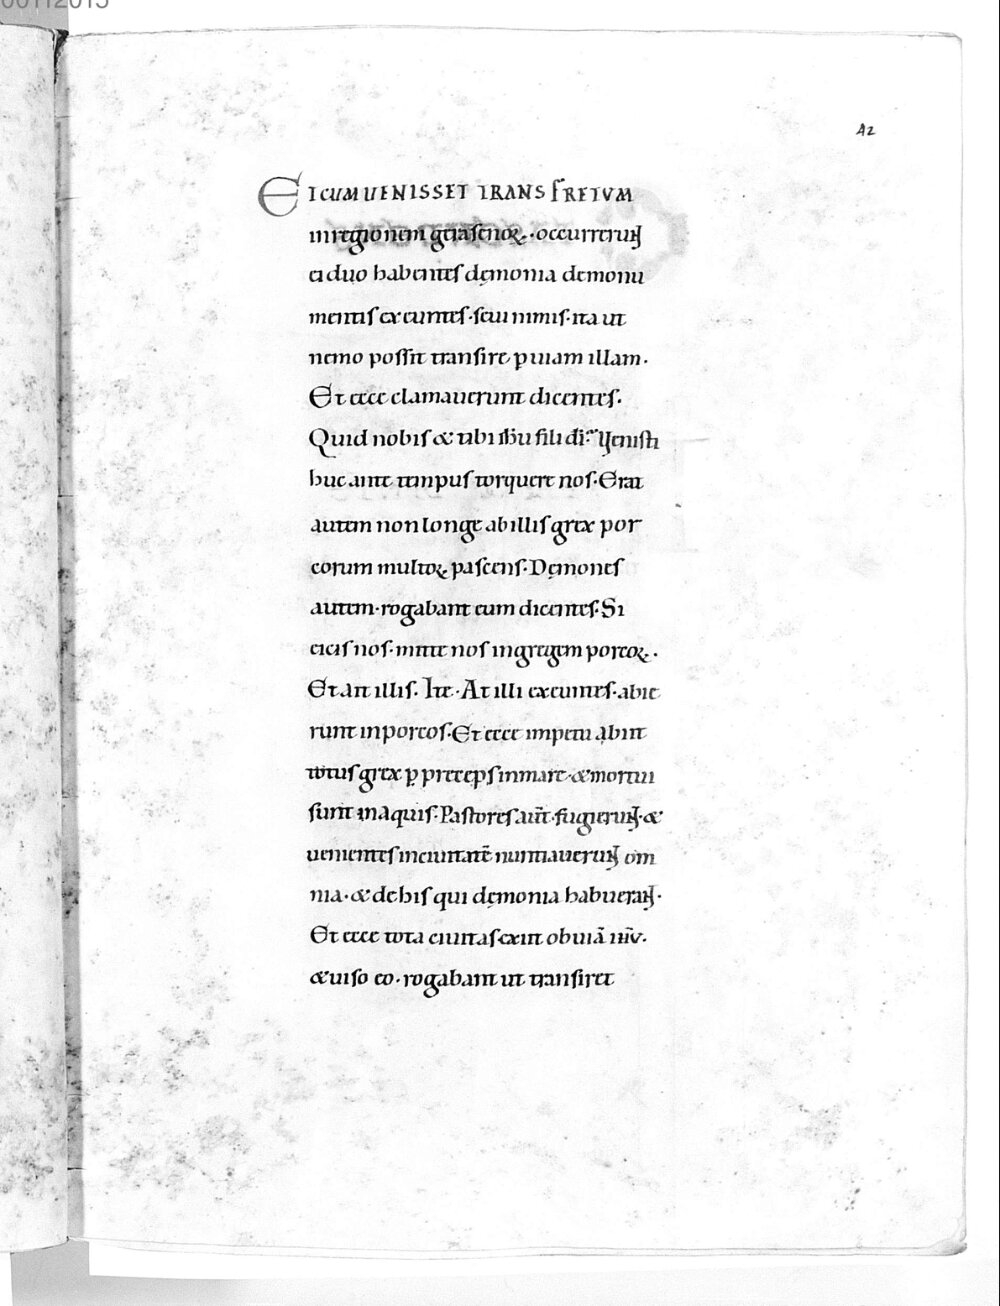 42
ET CUM UENISSET TRANS FRETUM
in regionem gerasenoꝝ · occurrerunt
ei duo habentes dęmonia de monu
mentis exeuntes · seui nimis · ita ut
nemo possit transire ꝑ uiam illam.
Et ecce clamauerunt dicentes.
Quid nobis & tibi ihu fili di? Uenisti
huc ante tempus torquere nos · Erat
autem non longe ab illis grex por
corum multoꝝ pascens · Dęmones
autem · rogabant eum dicentes · Si
eicis nos · mitte nos in gregem porcoꝝ ·
Et ait illis. Ite · At illi exeuntes · abie
runt in porcos · Et ecce impetu abiit
totus grex ꝑ preceps in mare · & mortui
sunt in aquis · Pastores aut̄ · fugierunt · &
uenientes in ciuitatē nuntiauerunt om
nia · & de his qui dęmonia habuerant ·
Et ecce tota ciuitas exiit obuiā ihū.
& uiso eo · rogabant ut transiret